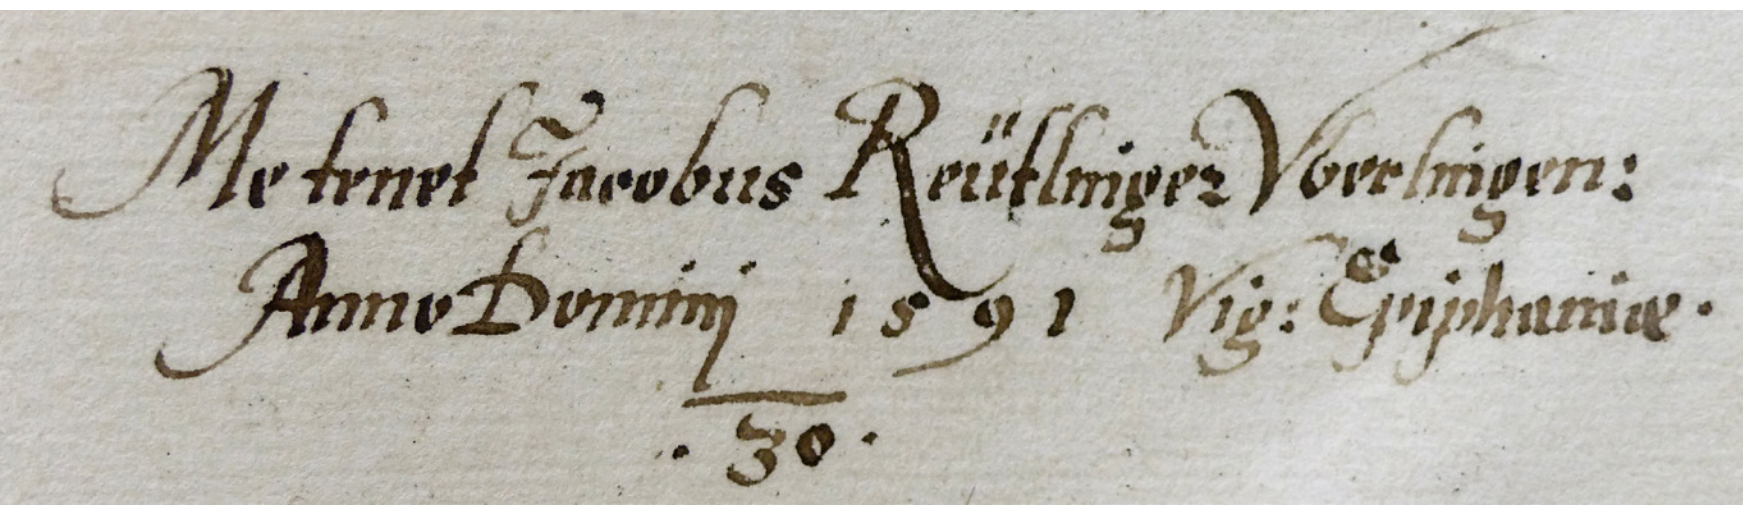 Me tenet Jacobus Reütlinger Vberlingen:
Anno Dominj 1591 Vig: Epiphaniæ.
. 30 .